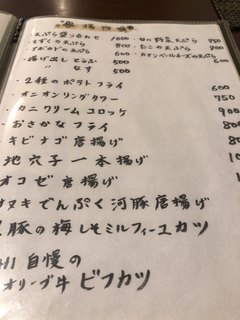 天ぷら盛り合わせ 1000
もずくの天ぷら 800
アボカドの天ぷら 800
揚げ出し とうふ 500
なす 500
・旬の野菜天ぷら 750
・たこの天ぷら 900
・カマンベールチーズの天ぷら 600
2種のポテトフライ 600
オニオンリングタワー
カニクリームコロッケ
おさかなフライ
キビナゴ唐揚げ
地穴子一本揚げ
オコゼ唐揚げ
ヌキでんぷく河豚唐揚げ
豚の梅しそミルフィーユカツ
自慢の
オリーブ牛ビフカツ